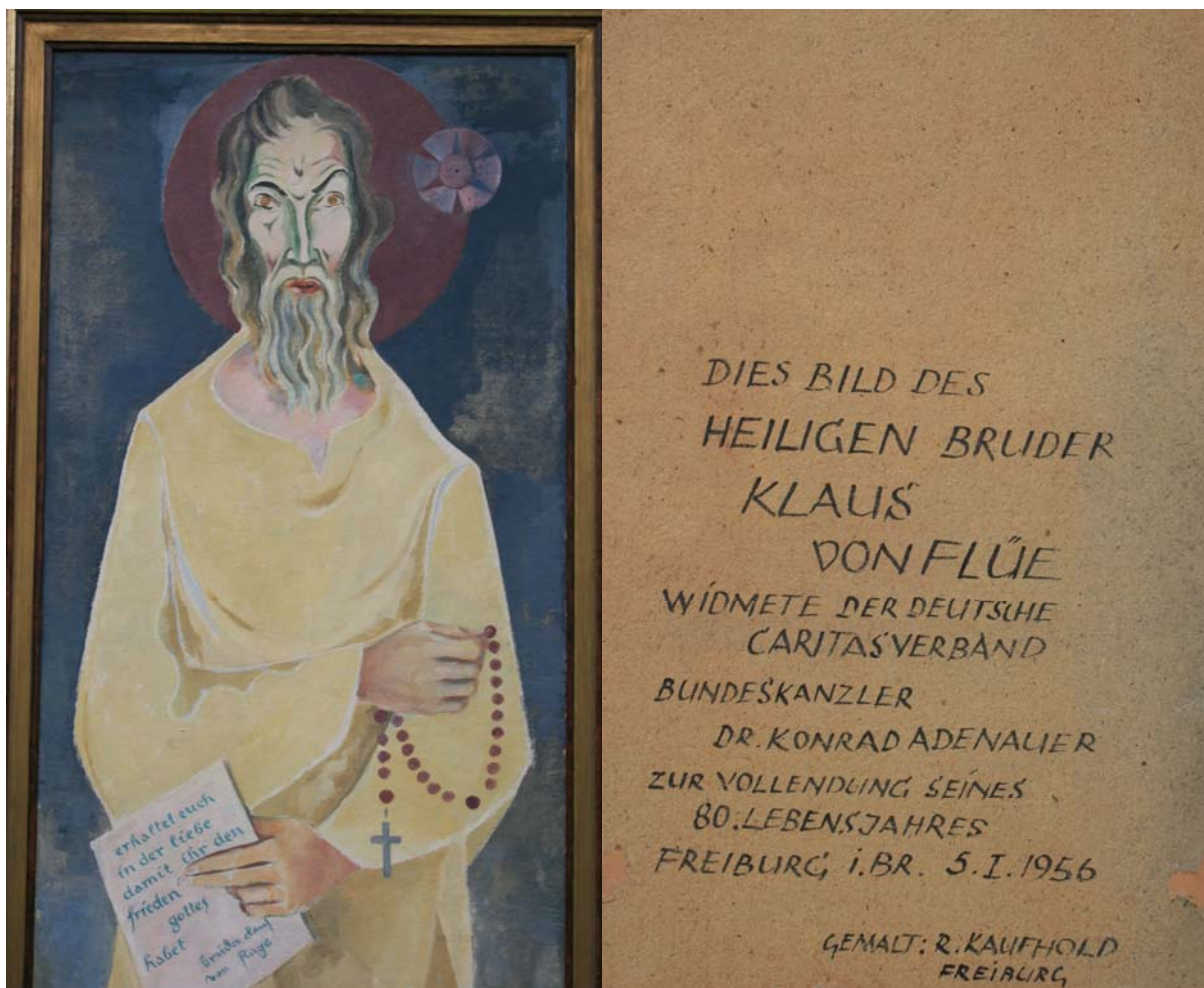 erhaltet euch
in der liebe
damit ihr den
frieden
gottes
habet
bruder
von
DIES BILD DES
HEILIGEN BRUDER
KLAUS
VON FLÜE
WIDMETE DER DEUTSCHE
CARITASVERBAND
BUNDESKANZLER
DR. KONRAD ADENAUER
ZUR VOLLENDUNG SEINES
80. LEBENSJAHRES
FREIBURG i. BR. 5. I. 1956
GEMALT: R. KAUFHOLD
FREIBURG